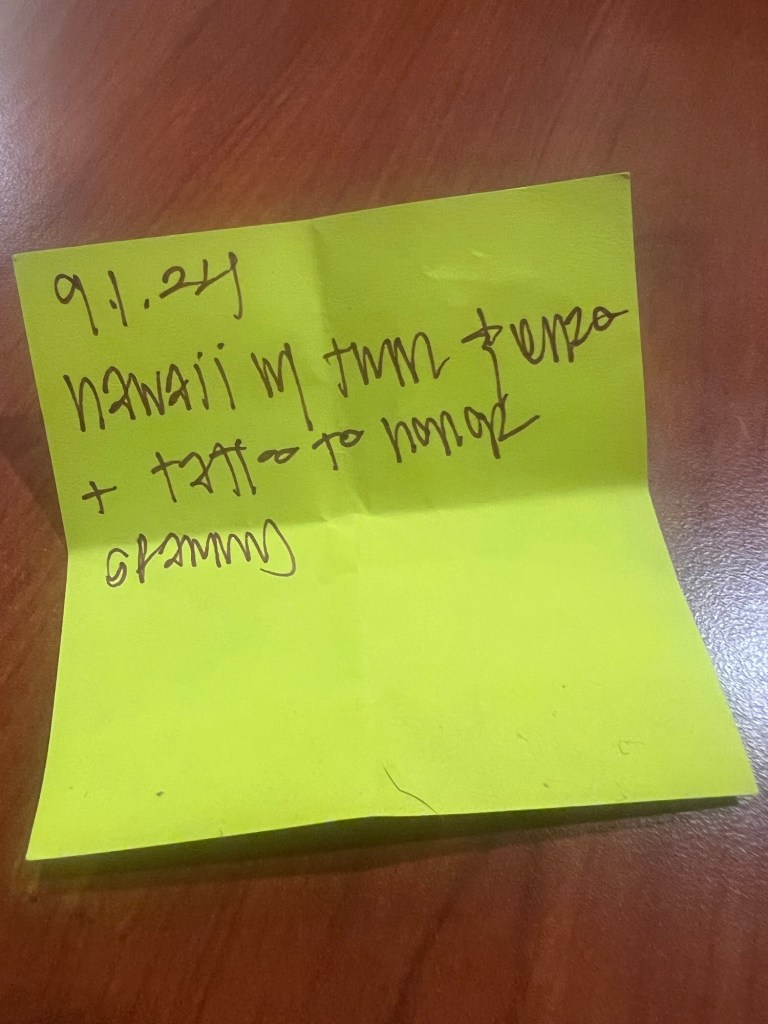 9.1.24
hawaii w/ tum + enzo
+ tattoo to honor
grammy